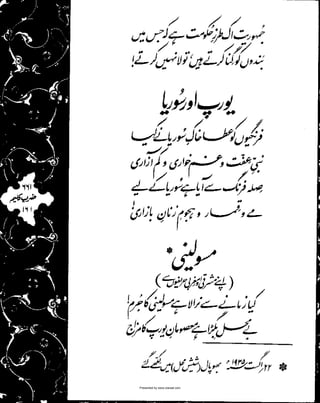 جمہوریت اک طرزِ حکومت ہے کہ جس میں
بندوں کو گنا کرتے ہیں، تولا نہیں کرتے!
یورپ اور سُوریا
فرنگیوں کو عطا خاکِ سُوریا نے کیا
نبیِّ عفّت و غم خواری و کم آزاری
صلہ فرنگ سے آیا ہے سُوریا کے لیے
مے و قمار و ہجومِ زنانِ بازاری!
مسولینی *
(اپنے مشرقی اور مغربی حریفوں سے)
کیا زمانے سے نرالا ہے مسولینی کا جُرم!
بے محل بگڑا ہے معصومانِ یورپ کا مزاج
* ۲۲ اگست ۱۹۳۵ء بھوپال (شیش محل) میں لکھے گئے
۶۶۱
ضربِ کلیم
۱۶۱
Presented by